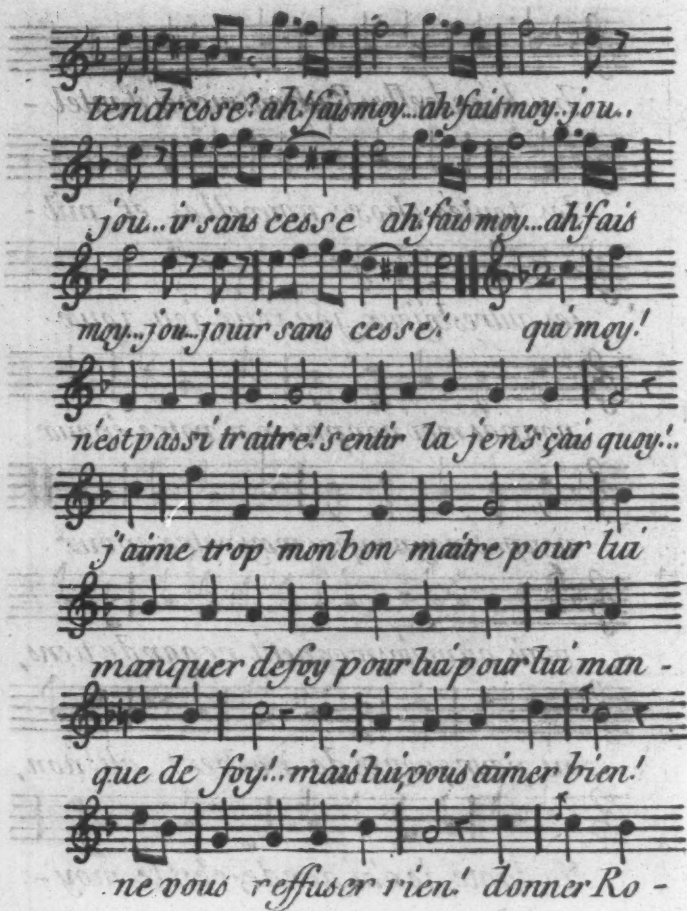 tendresse? ah! fais moy... ah! fais moy.. jou..
jou...ir sans cesse ah! fais moy... ah! fais
moy... jou... jouir sans cesse! qui moy!
n'est pas si traitre! sentir la je n'sçais quoy!..
j'aime trop mon bon maitre pour lui
manquer de foy pour lui pour lui man -
que de foy!.. mais lui, vous aimer bien!
ne vous reffuser rien! donner Ro -